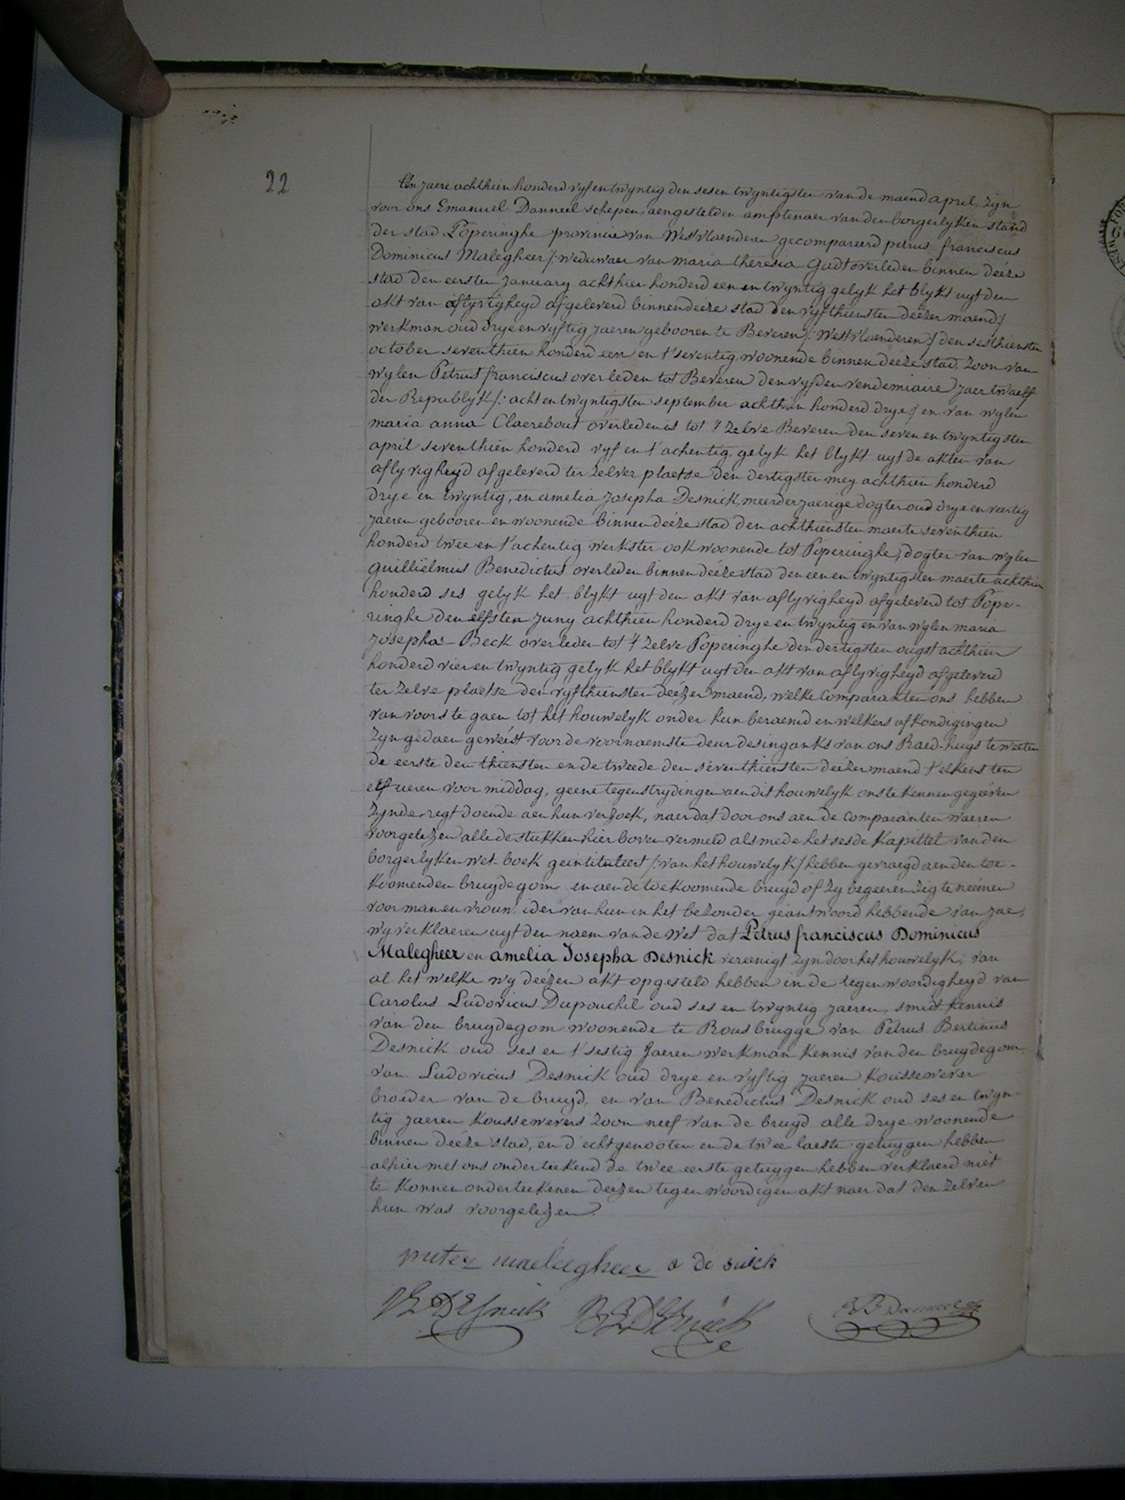 22
In jaere achthien honderd vyf en twyntig den sesen twyntigsten van de maend april zyn
voor ons Emanuel Danneel schepen aengestelden amptenaer van den borgerlyken stand
der stad Poperinghe provincie van Westvlaenderen gecompareerd petrus franciscus
Dominicus Malegheer /: weduwaer van maria theresia Gadt overleden binnen deéze
stad den eersten January achthien honderd een en twyntig gelyk het blykt uyt den
akt van aflyvigheyd afgeleverd binnen deeze stad den vyfthiensten deézer maend :/
werkman oud drye en vyftig jaeren gebooren te Beveren /: Westvlaenderen :/ den sesthiensten
october seventhien honderd een en t'seventig woonende binnen deéze stad, Zoon van
wylen Petrus franciscus overleden tot Beveren den vyfden vendemiaire jaer twaelf
der Republyk /: acht en twyntigsten september achthien honderd drye :/ en van wylen
maria anna Claerebout overleden is tot 't Zelve Beveren den seven en twyntigsten
april seventhien honderd vyf en t'achentig gelyk het blykt uyt de akten van
aflyvigheyd afgeleverd ter zelver plaetse den dertigsten mey achthien honderd
drye en twyntig, en amelia Josepha Desnick meerderjaerige dogter oud drye en veertig
jaeren gebooren en woonende binnen deéze stad den achthiensten maerte seventhien
honderd twee en t'achentig werkster ook woonende tot Poperinghe, dogter van wylen
guillielmus Benedictus overleden binnen deéze stad den een en twyntigsten maerte achthien
honderd ses gelyk het blykt uyt den akt van aflyvigheyd afgeleverd tot Pope-
ringhe den elfsten Juny achthien honderd drye en twyntig en van wylen maria
Josepha Beck overleden tot 't Zelve Poperinghe den dertigsten ougst achthien
honderd vier en twyntig gelyk het blykt uyt den akt van aflyvigheyd afgeleverd
ter Zelve plaetse den vyfthiensten deézer maend, welke comparanten ons hebben
van voors te gaen tot het houwelyk onder hun beraemd en welkers afkondigingen
zyn gedaen geweést voor de voornaemste deur des inganks van ons Raed-huys te weéten
de eerste den thiensten en de tweede den seventhiensten deézer maend t'elkens ten
elf ueren voor middag, geene tegenstrydingen aen dit houwelyk ons te kennen gegeéven
zynde regt doende aen hun verzoek, naer dat door ons aen de comparanten waeren
voorgelezen alle de stukken hier boven vermeld als mede het sesde kapittel van den
borgerlyken wet-boek geintituleert /: van het houwelyk :/ hebben gevraegd aen den toe-
koomenden bruydegom en aen de toekoomende bruyd of zy begeeren zig te neémen
voor man en vrouw, ider van hun in het bezonder geantwoord hebbende van jae
wy verklaeren uyt den naem van de wet dat Petrus franciscus Dominicus
Malegheer en amelia Josepha Desnick vereenigt zyn door het houwelyk, van
al het welke wy deézen akt opgesteld hebben in de tegenwoordigheyd van
Carolus Ludovicus Dupouchil oud ses en twyntig jaeren, smid kennis
van den bruydegom woonende te Rousbrugge, van Petrus Bertinus
Desnick oud ses en t'sestig Jaeren werkman kennis van den bruydegom
van Ludovicus Desnick oud drye en vyftig jaeren koussewever
broeder van de bruyd, en van Benedictus Desnick oud ses en twyn-
tig jaeren koussewevers zoon neef van de bruyd alle drye woonende
binnen deéze stad, en d'echtgenooten en de twee laeste getuygen hebben
alhier met ons onderteekend de twee eerste getuygen hebben verklaerd niet
te konnen onderteekenen deézen tegenwoordigen akt naer dat den zelven
hun was voorgelezen.
pieter malegheer a de snick